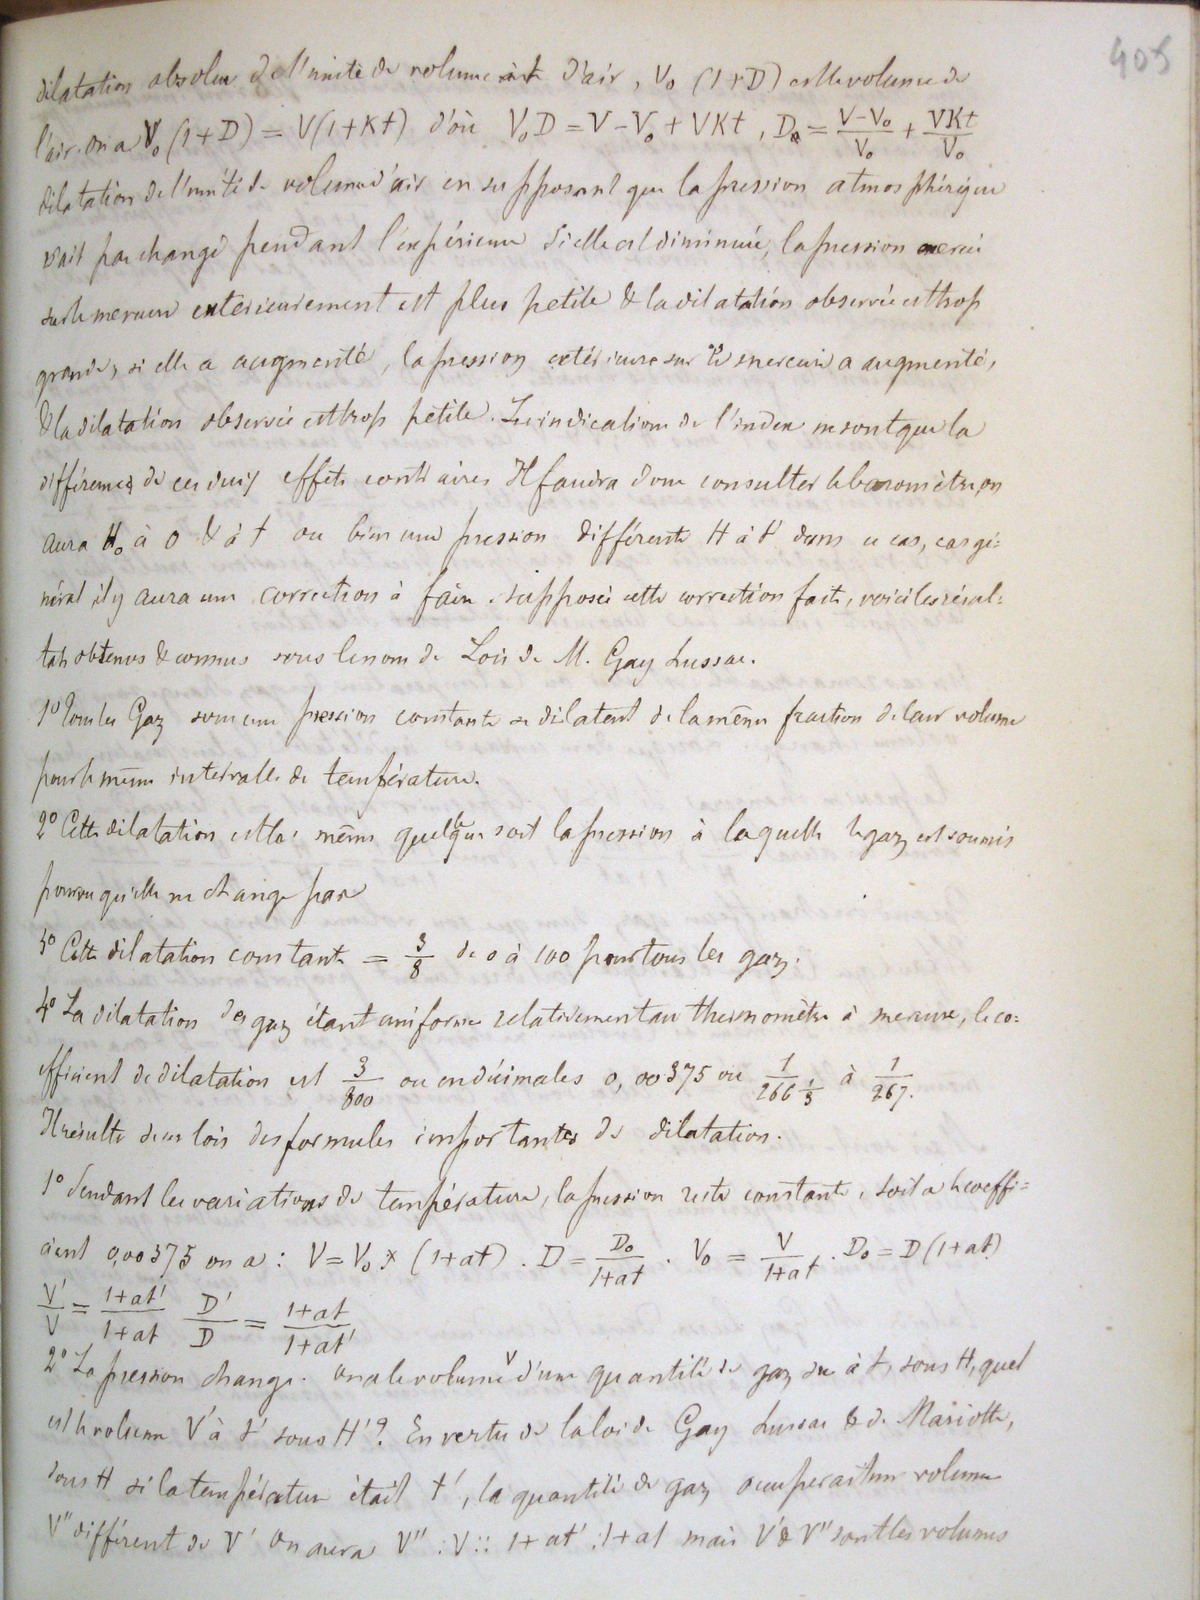 405
dilatation absolue de l'unité de volume d'air, V₀ (1+D) est le volume de
l'air. on a V₀(1+D) = V(1+Kt) d'où V₀D = V-V₀ + VKt, D = (V-V₀)/V₀ + VKt/V₀
dilatation de l'unité de volume d'air en supposant que la pression atmosphérique
n'ait pas changé pendant l'expérience Si elle est diminuée, la pression exercée
sur le mercure extérieurement est plus petite & la dilatation observée est trop
grande, si elle a augmenté, la pression extérieure sur le mercure a augmenté,
& la dilatation observée est trop petite. Les indications de l'index ne sont que la
différence de ces deux effets contraires Il faudra donc consulter le baromètre, on
aura H₀ à 0 & à t ou bien une pression différente H à t dans ce cas, cas gé=
néral il y aura une correction à faire. supposée cette correction faite, voici les résul=
tats obtenus & connus sous le nom de Lois de M. Gay Lussac.
1º Tous les Gaz sous une pression constante se dilatent de la même fraction de leur volume
pour le même intervalle de température.
2º Cette dilatation est la même quelle que soit la pression à laquelle le gaz est soumis
pourvu qu'elle ne change pas
3º Cette dilatation constante = 3/8 de 0 à 100 pour tous les gaz.
4º La dilatation des gaz étant uniforme relativement au thermomètre à mercure, le co=
efficient de dilatation est 3/800 ou en décimales 0,00375 ou 1/266 1/3 à 1/267.
Il résulte de ces lois des formules importantes de dilatation.
1º Pendant les variations de température, la pression reste constante, soit a le coeffi=
cient 0,00375 on a : V = V₀ x (1+at) . D = D₀/(1+at) . V₀ = V/(1+at) . D₀ = D(1+at)
V'/V = (1+at')/(1+at) D'/D = (1+at)/(1+at')
2º La pression change. on a le volume V d'une quantité de gaz à t, sous H, quel
est le volume V' à t' sous H'? En vertu de la loi de Gay Lussac & de Mariotte,
sous H si la température était t', la quantité de gaz occuperait un volume
V'' différent de V' On aura V'' : V :: 1+at' : 1+at mais V' & V'' sont les volumes